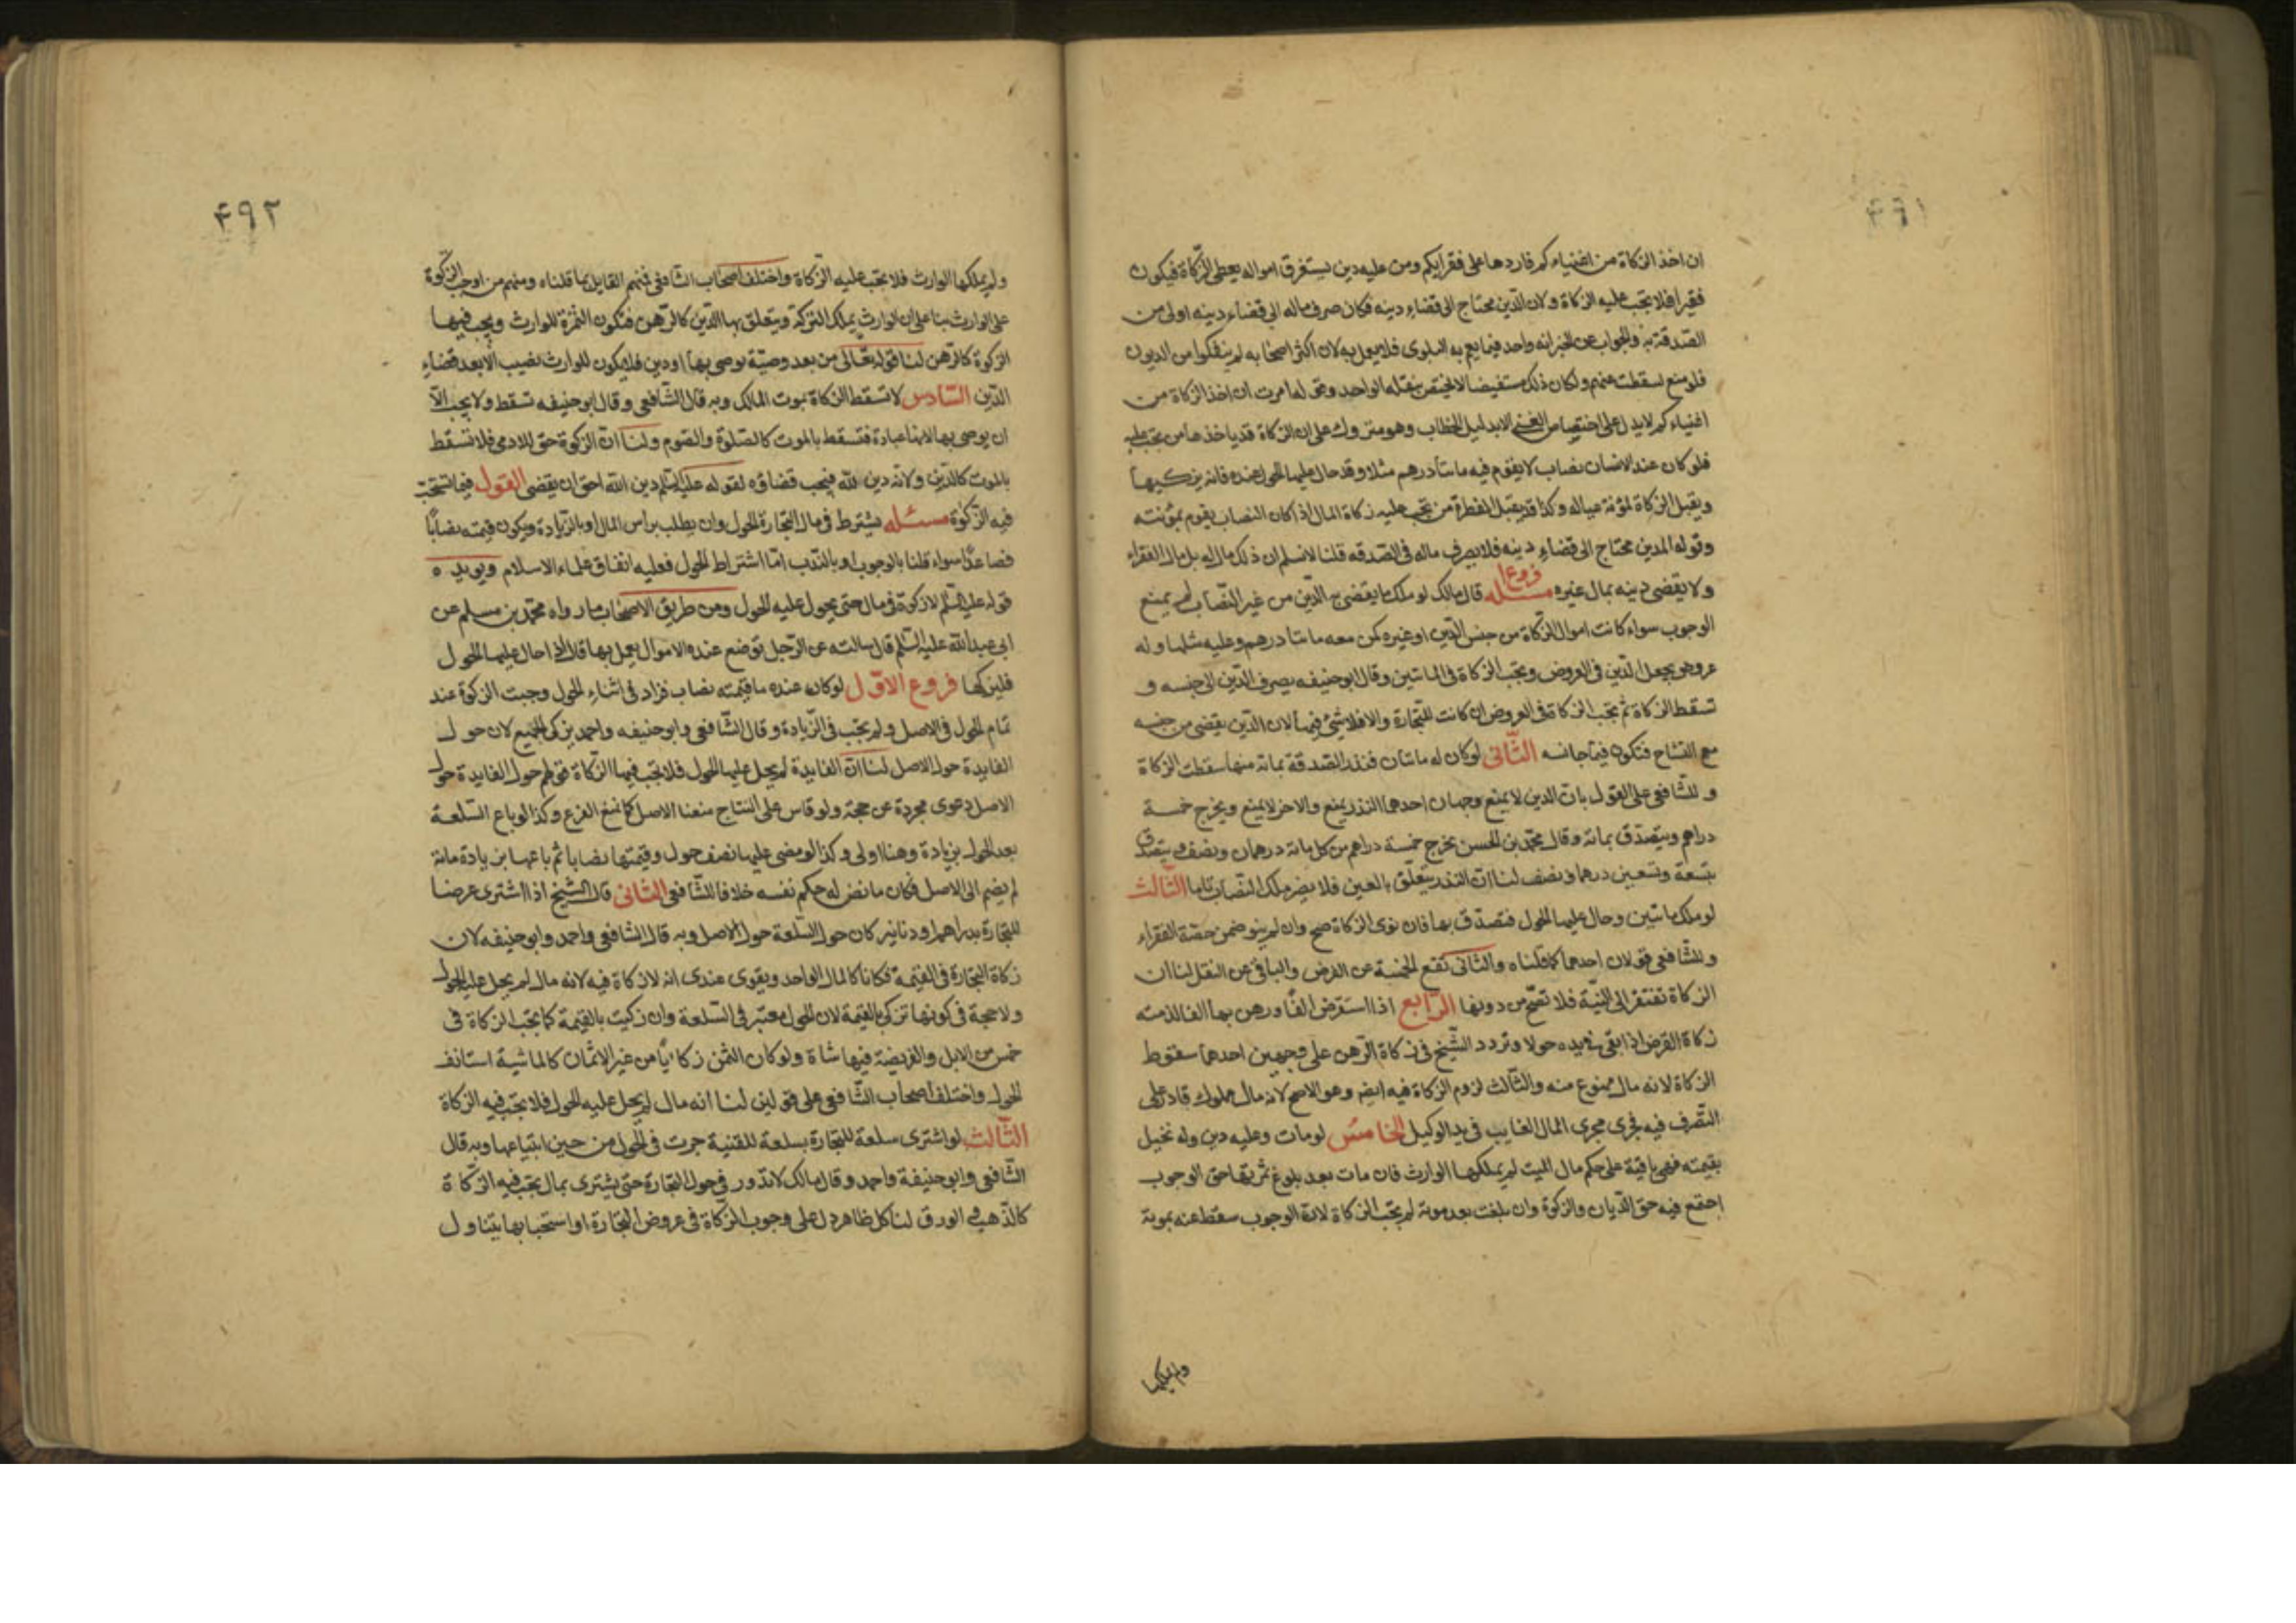 ۴۹۱
ان اخذ الزكاة من اغنياءكم فاردها على فقرايكم ومن عليه دين يستغرق امواله يعطى الزكاة فيكون
فقيرا فلا تجب عليه الزكاة ولان الدين محتاج الى قضاء دينه فكان صرف ماله الى قضاء دينه اولى من
الصدقة به والجواب عن الخبر انه واحد فيما يعم به البلوى فلا يعمل به لان اكثر اصحابه لم ينفكوا من الديون
فلو منع لسقطت عنهم ولكان ذلك مستفيضا لا يختص بنقله الواحد ونحو له امرت ان اخذ الزكاة من
اغنياءكم لا يدل على اختصاص الغنى الا بدليل الخطاب وهو متروك على ان الزكاة قد ياخذها من تجب عليه
فلو كان عند الانسان نصاب لا يقوم فيه مائتا درهم مثلا وقد حال عليها الحول عنده فانه يزكيها
ويقبل الزكاة لمؤنة عياله وكذا قد يقبل الفطرة من تجب عليه زكاة المال اذا كان النصاب يقوم بمؤنته
وقوله المدين محتاج الى قضاء دينه فلا يصرف ماله في الصدقه قلنا لا نسلم ان ذلك مال له بل مال الفقراء
ولا يقضى دينه بمال غيره مسئله فروع قال مالك لو ملك ما يقضى به الدين من غير النصاب لم يمنع
الوجوب سواء كانت اموال الزكاة من جنس الدين او غيره كمن معه مائتا درهم وعليه مثلها وله
عروض يجعل الدين في العروض وتجب الزكاة في المائتين وقال ابو حنيفه يصرف الدين الى جنسه و
تسقط الزكاة ثم تجب الزكاة في العروض ان كانت للتجارة والا فلا شئ فيها لان الدين يقضى من جنسه
مع التشاح فتكون فيما جانسه الثاني لو كان له مائتان فنذر الصدقة بمائة منها سقطت الزكاة
وللشافعي على القول بان الدين لا يمنع وجهان احدهما النذر يمنع والاخر لا يمنع ويخرج خمسة
دراهم ويتصدق بمائة وقال محمد بن الحسن يخرج خمسة دراهم من كل مائة درهمان ونصف ويتصدق
بتسعة وتسعين درهما ونصف لنا ان النذر يتعلق بالعين فلا يضر ملك النصاب تاما الثالث
لو ملك مائتين وحال عليها الحول فتصدق بها فان نوى الزكاة صح وان لم ينو ضمن حصة الفقراء
وللشافعي قولان احدهما كما قلناه والثاني تقع الخمسة عن الفرض والباقي عن النفل لنا ان
الزكاة تفتقر الى النية فلا تصح من دونها الرابع اذا استقرض الفا ورهن بها الفا لزمته
زكاة القرض اذا بقى في يده حولا وتردد الشيخ في زكاة الرهن على وجهين احدهما سقوط
الزكاة لانه مال ممنوع منه والثالث لزوم الزكاة فيه ايضا وهو الاصح لانه مال مملوك قادر على
التصرف فيه فجرى مجرى المال الغايب في يد الوكيل الخامس لو مات وعليه دين وله نخيل
بقيمته فهى باقية على حكم مال الميت لم يملكها الوارث فان مات بعد بلوغ ثمرتها حق الوجوب
اجتمع فيه حق الديان والزكوة وان بلغت بعد موته لم تجب الزكاة لان الوجوب سقط عنه بموته
ولم يملكها
۴۹۲
ولم يملكها الوارث فلا تجب عليه الزكاة واختلف اصحاب الشافعي فمنهم القايل بما قلناه ومنهم من اوجب الزكوة
على الوارث بناء على ان الوارث يملك التركة ويتعلق بها الدين كالرهن فتكون الثمرة للوارث ويجب فيها
الزكوة كالرهن لنا قوله تعالى من بعد وصية يوصى بها او دين فلا يكون للوارث نصيب الا بعد قضاء
الدين السادس لا تسقط الزكاة بموت المالك وبه قال الشافعي وقال ابو حنيفه تسقط ولا يجب الا
ان يوصى بها لانها عبادة فتسقط بالموت كالصلوة والصوم ولنا ان الزكوة حق للادمى فلا تسقط
بالموت كالدين ولانه دين الله فيجب قضاؤه لقوله عليه السلم دين الله احق ان يقضى القول فيما تستحب
فيه الزكوة مسئله يشترط في مال التجارة الحول وان يطلب براس المال او بالزيادة ويكون قيمته نصابا
فصاعدا سواء قلنا بالوجوب او بالندب اما اشتراط الحول فعليه اتفاق علماء الاسلام ويويده
قوله عليه السلم لا زكوة في مال حتى يحول عليه الحول ومن طريق الاصحاب ما رواه محمد بن مسلم عن
ابي عبد الله عليه السلم قال سالته عن الرجل توضع عنده الاموال يعمل بها قال اذا حال عليها الحول
فليزكها فروع الاول لو كان عنده ما قيمته نصاب فزاد في اثناء الحول وجبت الزكوة عند
تمام الحول في الاصل ولم تجب في الزيادة وقال الشافعي وابو حنيفه واحمد يزكى الجميع لان حول
الفايدة حول الاصل لنا ان الفايدة لم يحل عليها الحول فلا تجب فيها الزكاة قولهم حول الفايدة حول
الاصل دعوى مجردة عن حجة ولو قاس على النتاج منعنا الاصل كما نمنع الفرع وكذا لو باع السلعة
بعد الحول بزيادة وهنا اولى وكذا لو مضى عليها نصف حول وقيمتها نصابا ثم باعها بزيادة مائة
لم يضم الى الاصل فكان ما نض له حكم نفسه خلافا للشافعي الثاني قال الشيخ اذا اشترى عرضا
للتجارة بدراهم او دنانير كان حول السلعة حول الاصل وبه قال الشافعي واحمد وابو حنيفه لان
زكاة التجارة في القيمة فكانا كالمال الواحد ويقوى عندى انه لا زكاة فيه لانه مال لم يحل عليه الحول
ولا حجة في كونها تزكى بالقيمة لان الحول معتبر في السلعة وان زكيت بالقيمة كما تجب الزكاة في
خمس من الابل والفريضة فيها شاة ولو كان الثمن زكايا من غير الاثمان كالماشية استانف
الحول واختلف اصحاب الشافعي على قولين لنا انه مال لم يحل عليه الحول فلا تجب فيه الزكاة
الثالث لو اشترى سلعة للتجارة بسلعة للقنية جرت في الحول من حين ابتياعها وبه قال
الشافعي وابو حنيفة واحمد وقال مالك لا تدور في حول التجارة حتى يشترى بمال تجب فيه الزكاة
كالذهب والورق لنا كل ظاهر دل على وجوب الزكاة في عروض التجارة او استحبابها يتناول